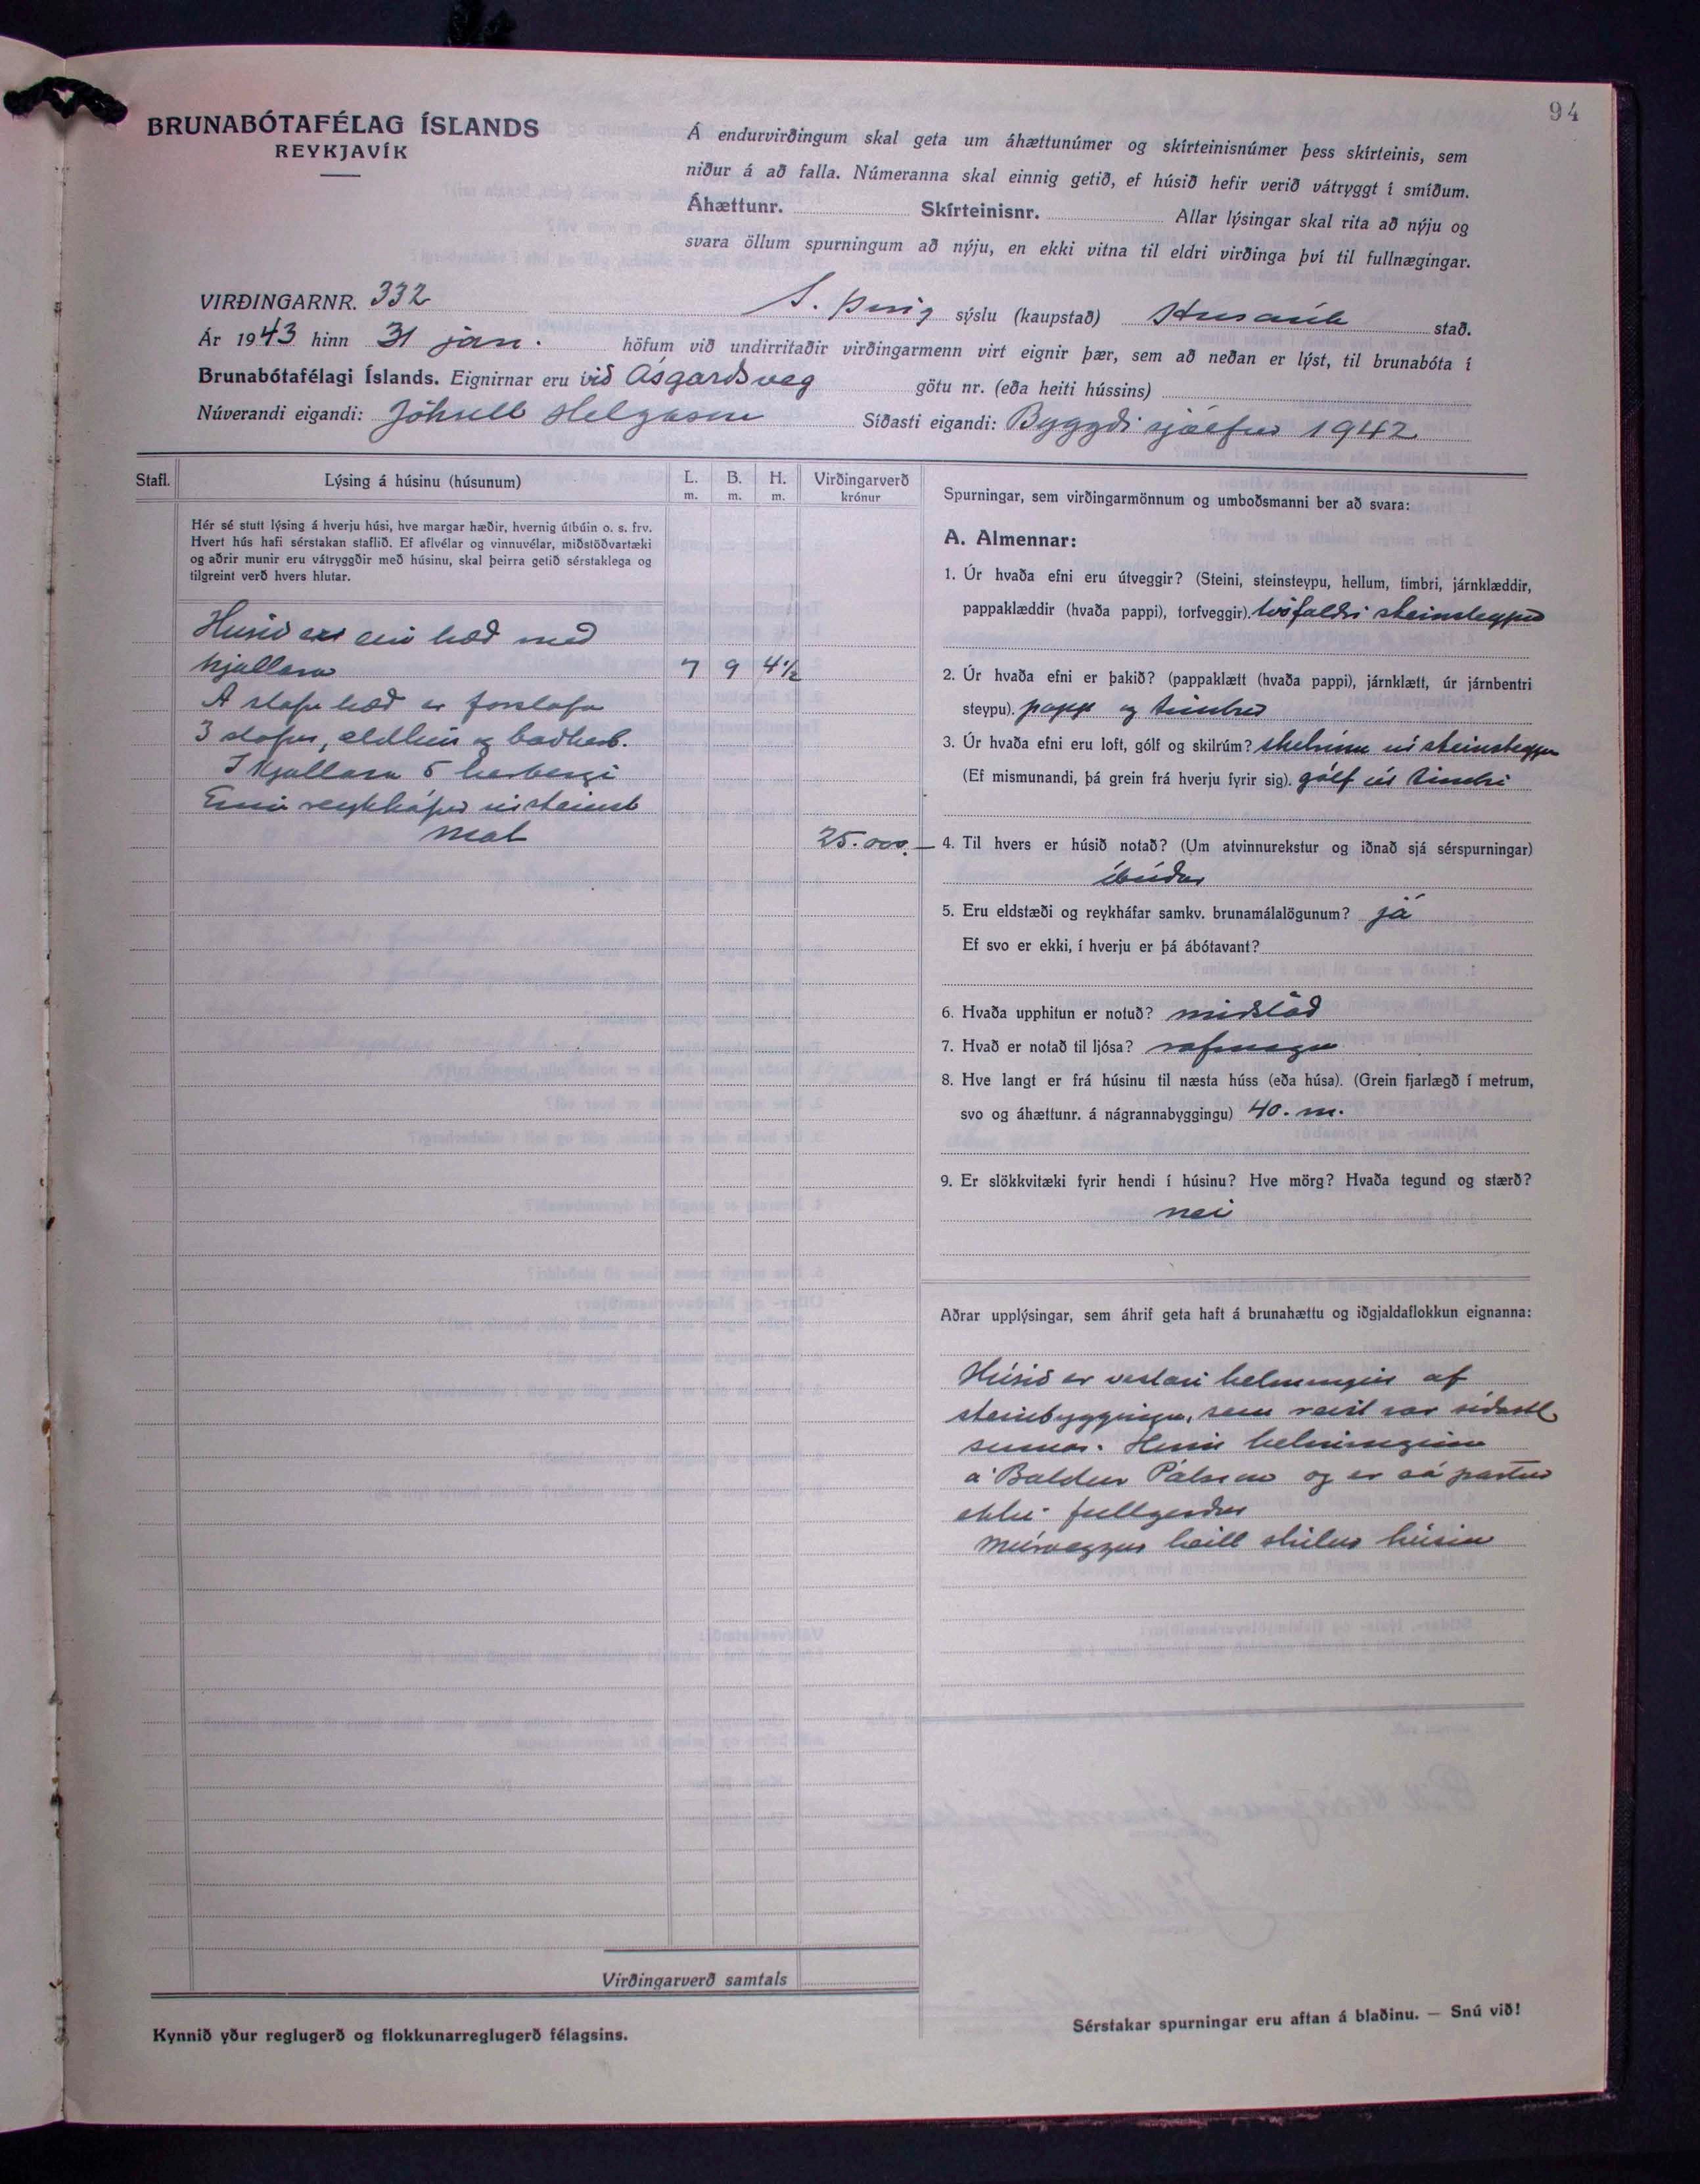 94
BRUNABÓTAFÉLAG ÍSLANDS
REYKJAVÍK
Á endurvirðingum skal geta um áhættunúmer og skírteinisnúmer þess skírteinis, sem
niður á að falla. Númeranna skal einnig getið, ef húsið hefir verið vátryggt í smíðum.
Áhættunr. Skírteinisnr. Allar lýsingar skal rita að nýju og
svara öllum spurningum að nýju, en ekki vitna til eldri virðinga því til fullnægingar.
VIRÐINGARNR. 332 S. Þing sýslu (kaupstað) Húsavík stað.
Ár 1943 hinn 31 jan. höfum við undirritaðir virðingarmenn virt eignir þær, sem að neðan er lýst, til brunabóta í
Brunabótafélagi Íslands. Eignirnar eru við Ásgarðsveg götu nr. (eða heiti hússins)
Núverandi eigandi: Jökull Helgason Síðasti eigandi: Byggði sjálfur 1942
Stafl. Lýsing á húsinu (húsunum) L. m. B. m. H. m. Virðingarverð krónur
Hér sé stutt lýsing á hverju húsi, hve margar hæðir, hvernig útbúin o. s. frv.
Hvert hús hafi sérstakan staflið. Ef aflvélar og vinnuvélar, miðstöðvartæki
og aðrir munir eru vátryggðir með húsinu, skal þeirra getið sérstaklega og
tilgreint verð hvers hlutar.
Húsið er ein hæð með
kjallara 7 9 4½
Á stofu hæð er forstofa
3 stofur, eldhús og baðherb.
Í kjallara 5 herbergi
Einn reykháfur úr steinst
Mat 25.000.—
Spurningar, sem virðingarmönnum og umboðsmanni ber að svara:
A. Almennar:
1. Úr hvaða efni eru útveggir? (Steini, steinsteypu, hellum, timbri, járnklæddir,
pappaklæddir (hvaða pappi), torfveggir). tvöfaldri steinsteypu
2. Úr hvaða efni er þakið? (pappaklætt (hvaða pappi), járnklætt, úr járnbentri
steypu). papp og timbur
3. Úr hvaða efni eru loft, gólf og skilrúm? skilrúm úr steinsteypu
(Ef mismunandi, þá grein frá hverju fyrir sig). gólf úr timbri
4. Til hvers er húsið notað? (Um atvinnurekstur og iðnað sjá sérspurningar)
íbúðar
5. Eru eldstæði og reykháfar samkv. brunamálalögunum? já
Ef svo er ekki, í hverju er þá ábótavant?
6. Hvaða upphitun er notuð? miðstöð
7. Hvað er notað til ljósa? rafmagn
8. Hve langt er frá húsinu til næsta húss (eða húsa). (Grein fjarlægð í metrum,
svo og áhættunr. á nágrannabyggingu) 40. m.
9. Er slökkvitæki fyrir hendi í húsinu? Hve mörg? Hvaða tegund og stærð?
nei
Aðrar upplýsingar, sem áhrif geta haft á brunahættu og iðgjaldaflokkun eignanna:
Húsið er vestari helmingur af
steinbyggingu, sem reist var síðastl
sumar. Hinn helminginn
á Baldur Pálsson og er sá partur
ekki fullgerður
Múrveggur heill skilur húsin
Virðingarverð samtals
Kynnið yður reglugerð og flokkunarreglugerð félagsins.
Sérstakar spurningar eru aftan á blaðinu. — Snú við!